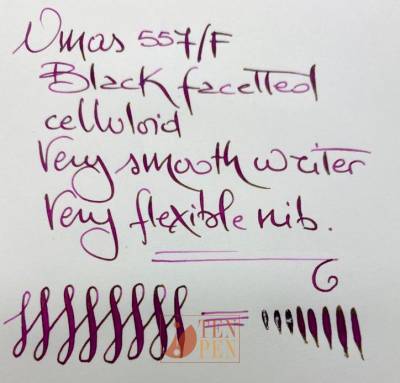 Omas 557/F
Black facetted
celluloid
Very smooth writer
Very flexible nib.
TEN
PEN